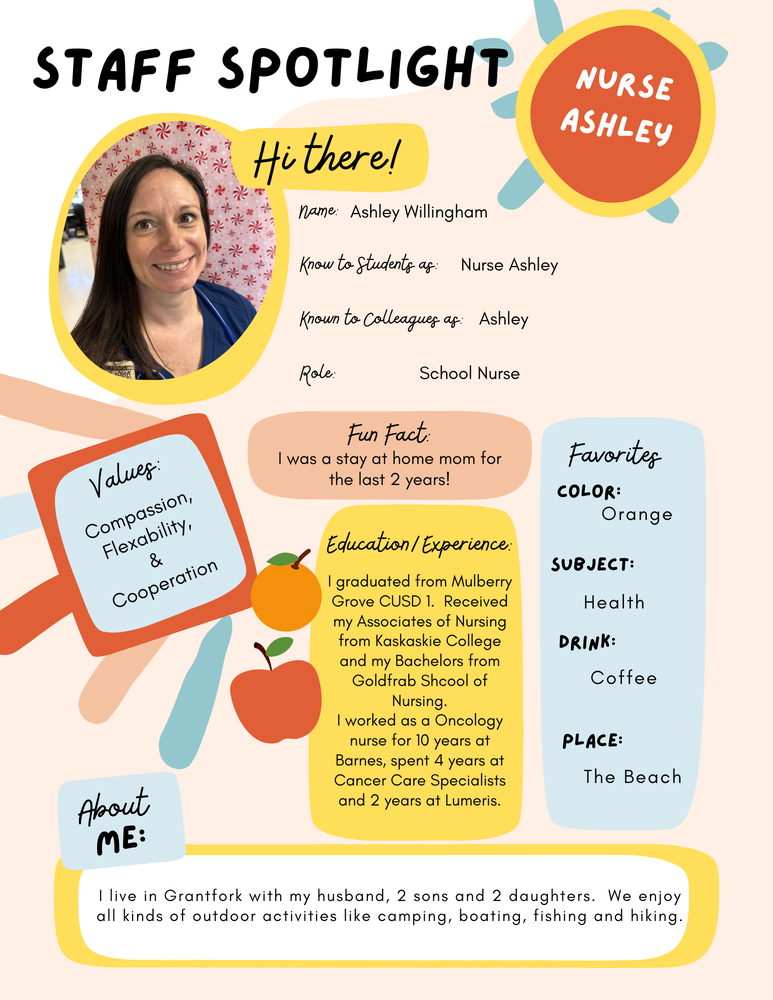 STAFF SPOTLIGHT
NURSE
ASHLEY
Hi there!
Name: Ashley Willingham
Know to Students as: Nurse Ashley
Known to Colleagues as: Ashley
Role: School Nurse
Values:
Compassion,
Flexability,
&
Cooperation
Fun Fact:
I was a stay at home mom for
the last 2 years!
Education/Experience:
I graduated from Mulberry
Grove CUSD 1. Received
my Associates of Nursing
from Kaskaskie College
and my Bachelors from
Goldfrab Shcool of
Nursing.
I worked as a Oncology
nurse for 10 years at
Barnes, spent 4 years at
Cancer Care Specialists
and 2 years at Lumeris.
Favorites
COLOR:
Orange
SUBJECT:
Health
DRINK:
Coffee
PLACE:
The Beach
About
ME:
I live in Grantfork with my husband, 2 sons and 2 daughters. We enjoy
all kinds of outdoor activities like camping, boating, fishing and hiking.